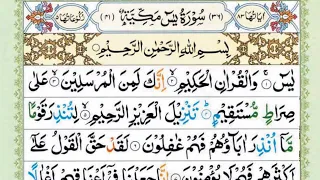 اٰیاتها ٨٣ (٣٦) سُوْرَةُ يٰسٓ مَكِّيَّةٌ (٤١) رُكُوْعَاتُهَا ٥
بِسْمِ اللّٰهِ الرَّحْمٰنِ الرَّحِيْمِ
يٰسٓ ۝ وَالْقُرْاٰنِ الْحَكِيْمِ ۝ اِنَّكَ لَمِنَ الْمُرْسَلِيْنَ ۝ عَلٰى
صِرَاطٍ مُّسْتَقِيْمٍ ۝ تَنْزِيْلَ الْعَزِيْزِ الرَّحِيْمِ ۝ لِتُنْذِرَ قَوْمًا
مَّاۤ اُنْذِرَ اٰبَآؤُهُمْ فَهُمْ غٰفِلُوْنَ ۝ لَقَدْ حَقَّ الْقَوْلُ عَلٰۤى
اَكْثَرِهِمْ فَهُمْ لَا يُؤْمِنُوْنَ ۝ اِنَّا جَعَلْنَا فِيْۤ اَعْنَاقِهِمْ اَغْلٰلًا